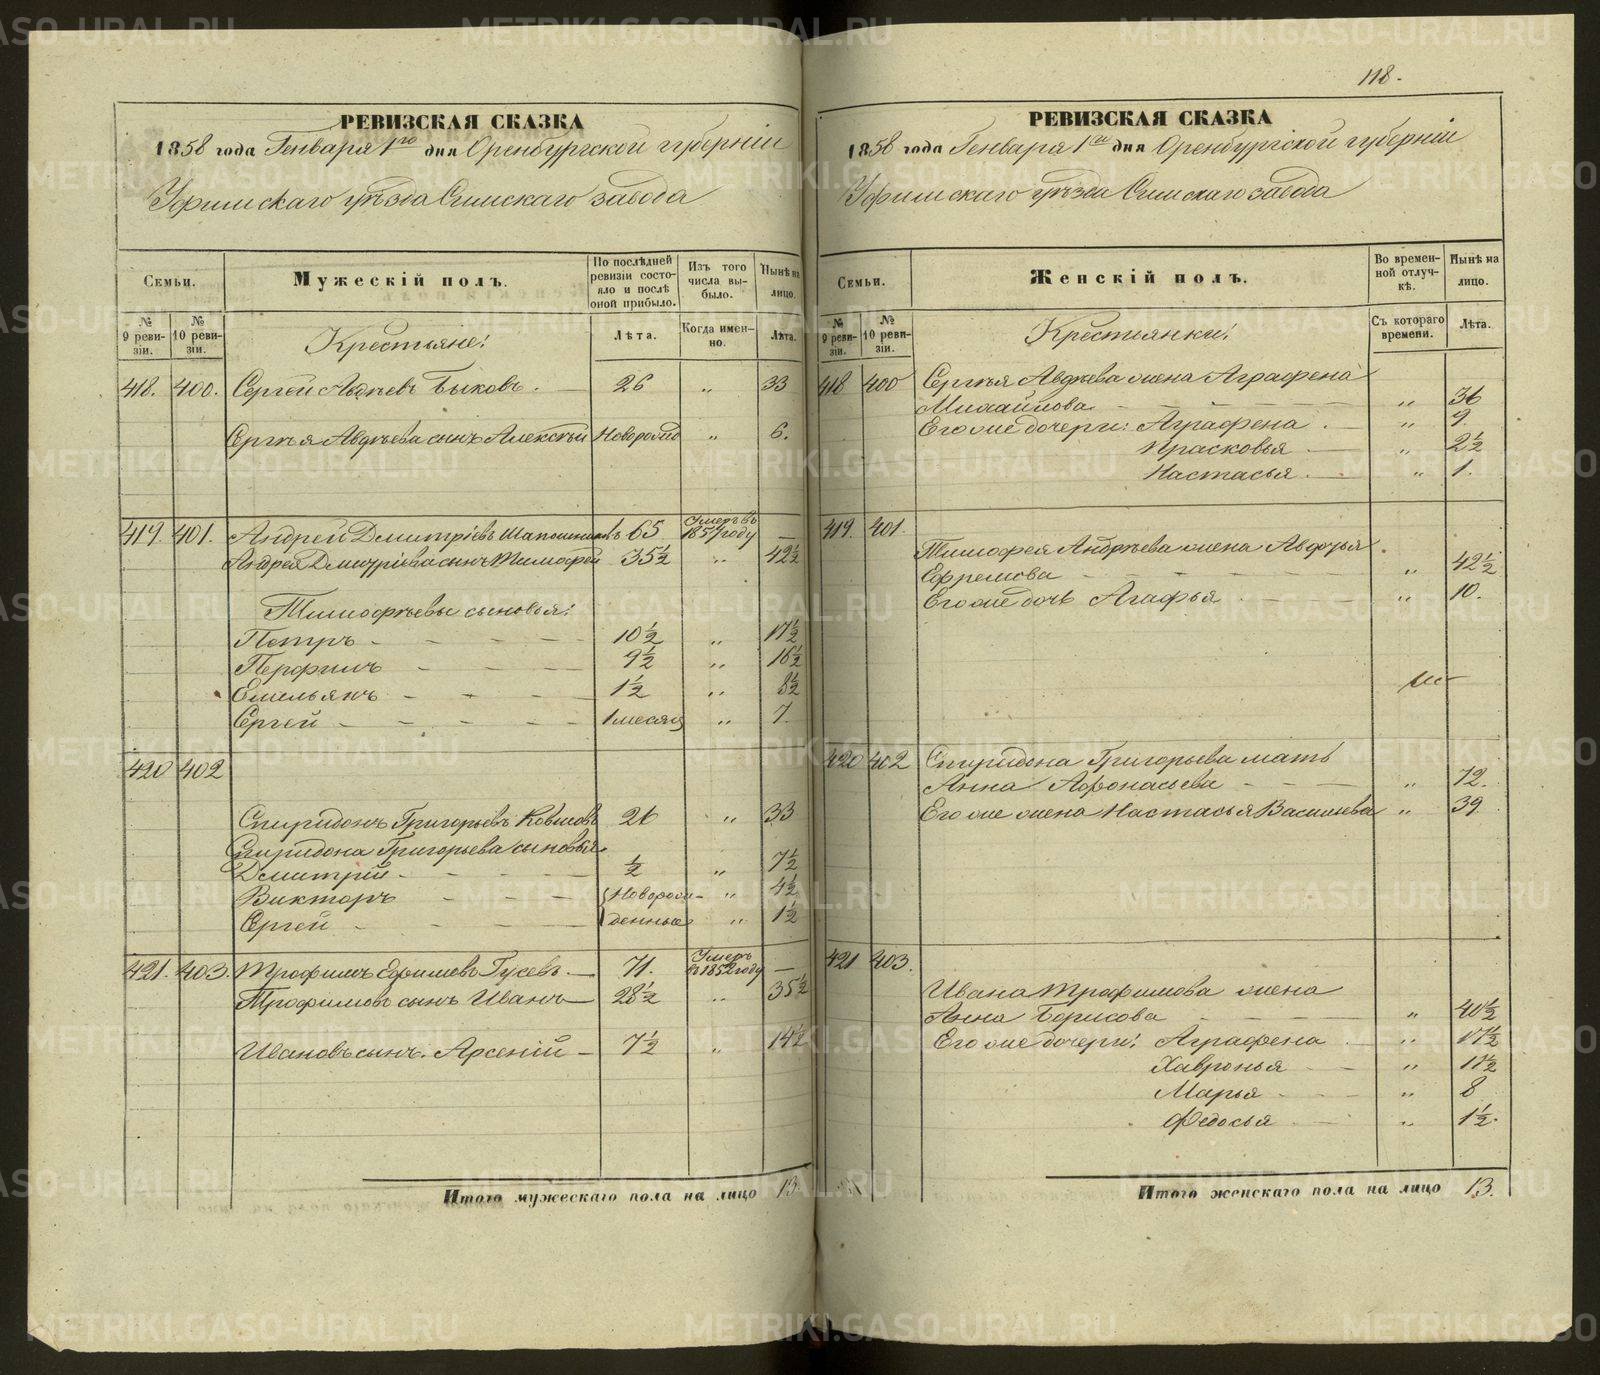 118.
РЕВИЗСКАЯ СКАЗКА
1858 года Генваря 1го дня Оренбургской губерніи
Уфимскаго уѣзда Симскаго завода
Семьи.
Мужескій полъ.
По послѣдней ревизіи состояло и послѣ оной прибыло.
Изъ того числа выбыло.
Нынѣ на лицо.
№ 9 ревизіи.
№ 10 ревизіи.
Крестьяне:
Лѣта.
Когда именно.
Лѣта.
418. 400. Сергей Авдѣевъ Быковъ. 26 „ 33
Сергѣя Авдѣева сынъ Алексѣй Новорожд „ 6.
419. 401. Андрей Дмитріевъ Шапошниковъ 65 Умеръ въ 1857 году —
Андрея Дмитріева сынъ Тимофей 35½ „ 42½
Тимофѣевы сыновья:
Петръ 10½ „ 17½
Перфилъ 9½ „ 16½
Емельянъ 1½ „ 8½
Сергей 1 месяц „ 7.
420 402
Спиридонъ Григорьевъ 26 „ 33
Спиридона Григорьева сыновья
Дмитрей ½ „ 7½
Викторъ Новорож- „ 4½
Сергей денные „ 1½
421. 403. Трофимъ Ефимовъ Гусевъ 71. Умеръ въ 1852 году —
Трофимовъ сынъ Иванъ 28½ „ 35½
Ивановъ сынъ. Арсеній 7½ „ 14½
Итого мужескаго пола на лицо 13
РЕВИЗСКАЯ СКАЗКА
1858 года Генваря 1го дня Оренбургской губерніи
Уфимскаго уѣзда Симскаго завода
Семьи.
Женскій полъ.
Во временной отлучкѣ.
Нынѣ на лицо.
№ 9 ревизіи.
№ 10 ревизіи.
Крестьянки:
Съ котораго времени.
Лѣта.
418 400 Сергѣя Авдѣева жена Аграфена
Михайлова „ 36
Его же дочери: Аграфена „ 9.
Прасковья „ 2½
Настасья „ 1.
419. 401.
Тимофея Андрѣева жена Авдотья
Ефремова „ 42½
Его же дочь Агафья „ 10.
420 402 Спиридона Григорьева мать
Анна Афонасьева „ 72.
Его же жена Настасья Васильева „ 39
421 403.
Ивана Трофимова жена
Анна Борисова „ 40½
Его же дочери: Аграфена „ 17½
Хавронья „ 11½
Марья „ 8
Федосья „ 1½.
Итого женскаго пола на лицо 13.
METRIKI.GASO-URAL.RU